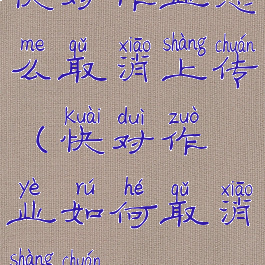 me qǔ xiāo shàng chuán
么取消上传
Kuài duì zuò
(快对作
yè rú hé qǔ xiāo
业如何取消
shàng chuán